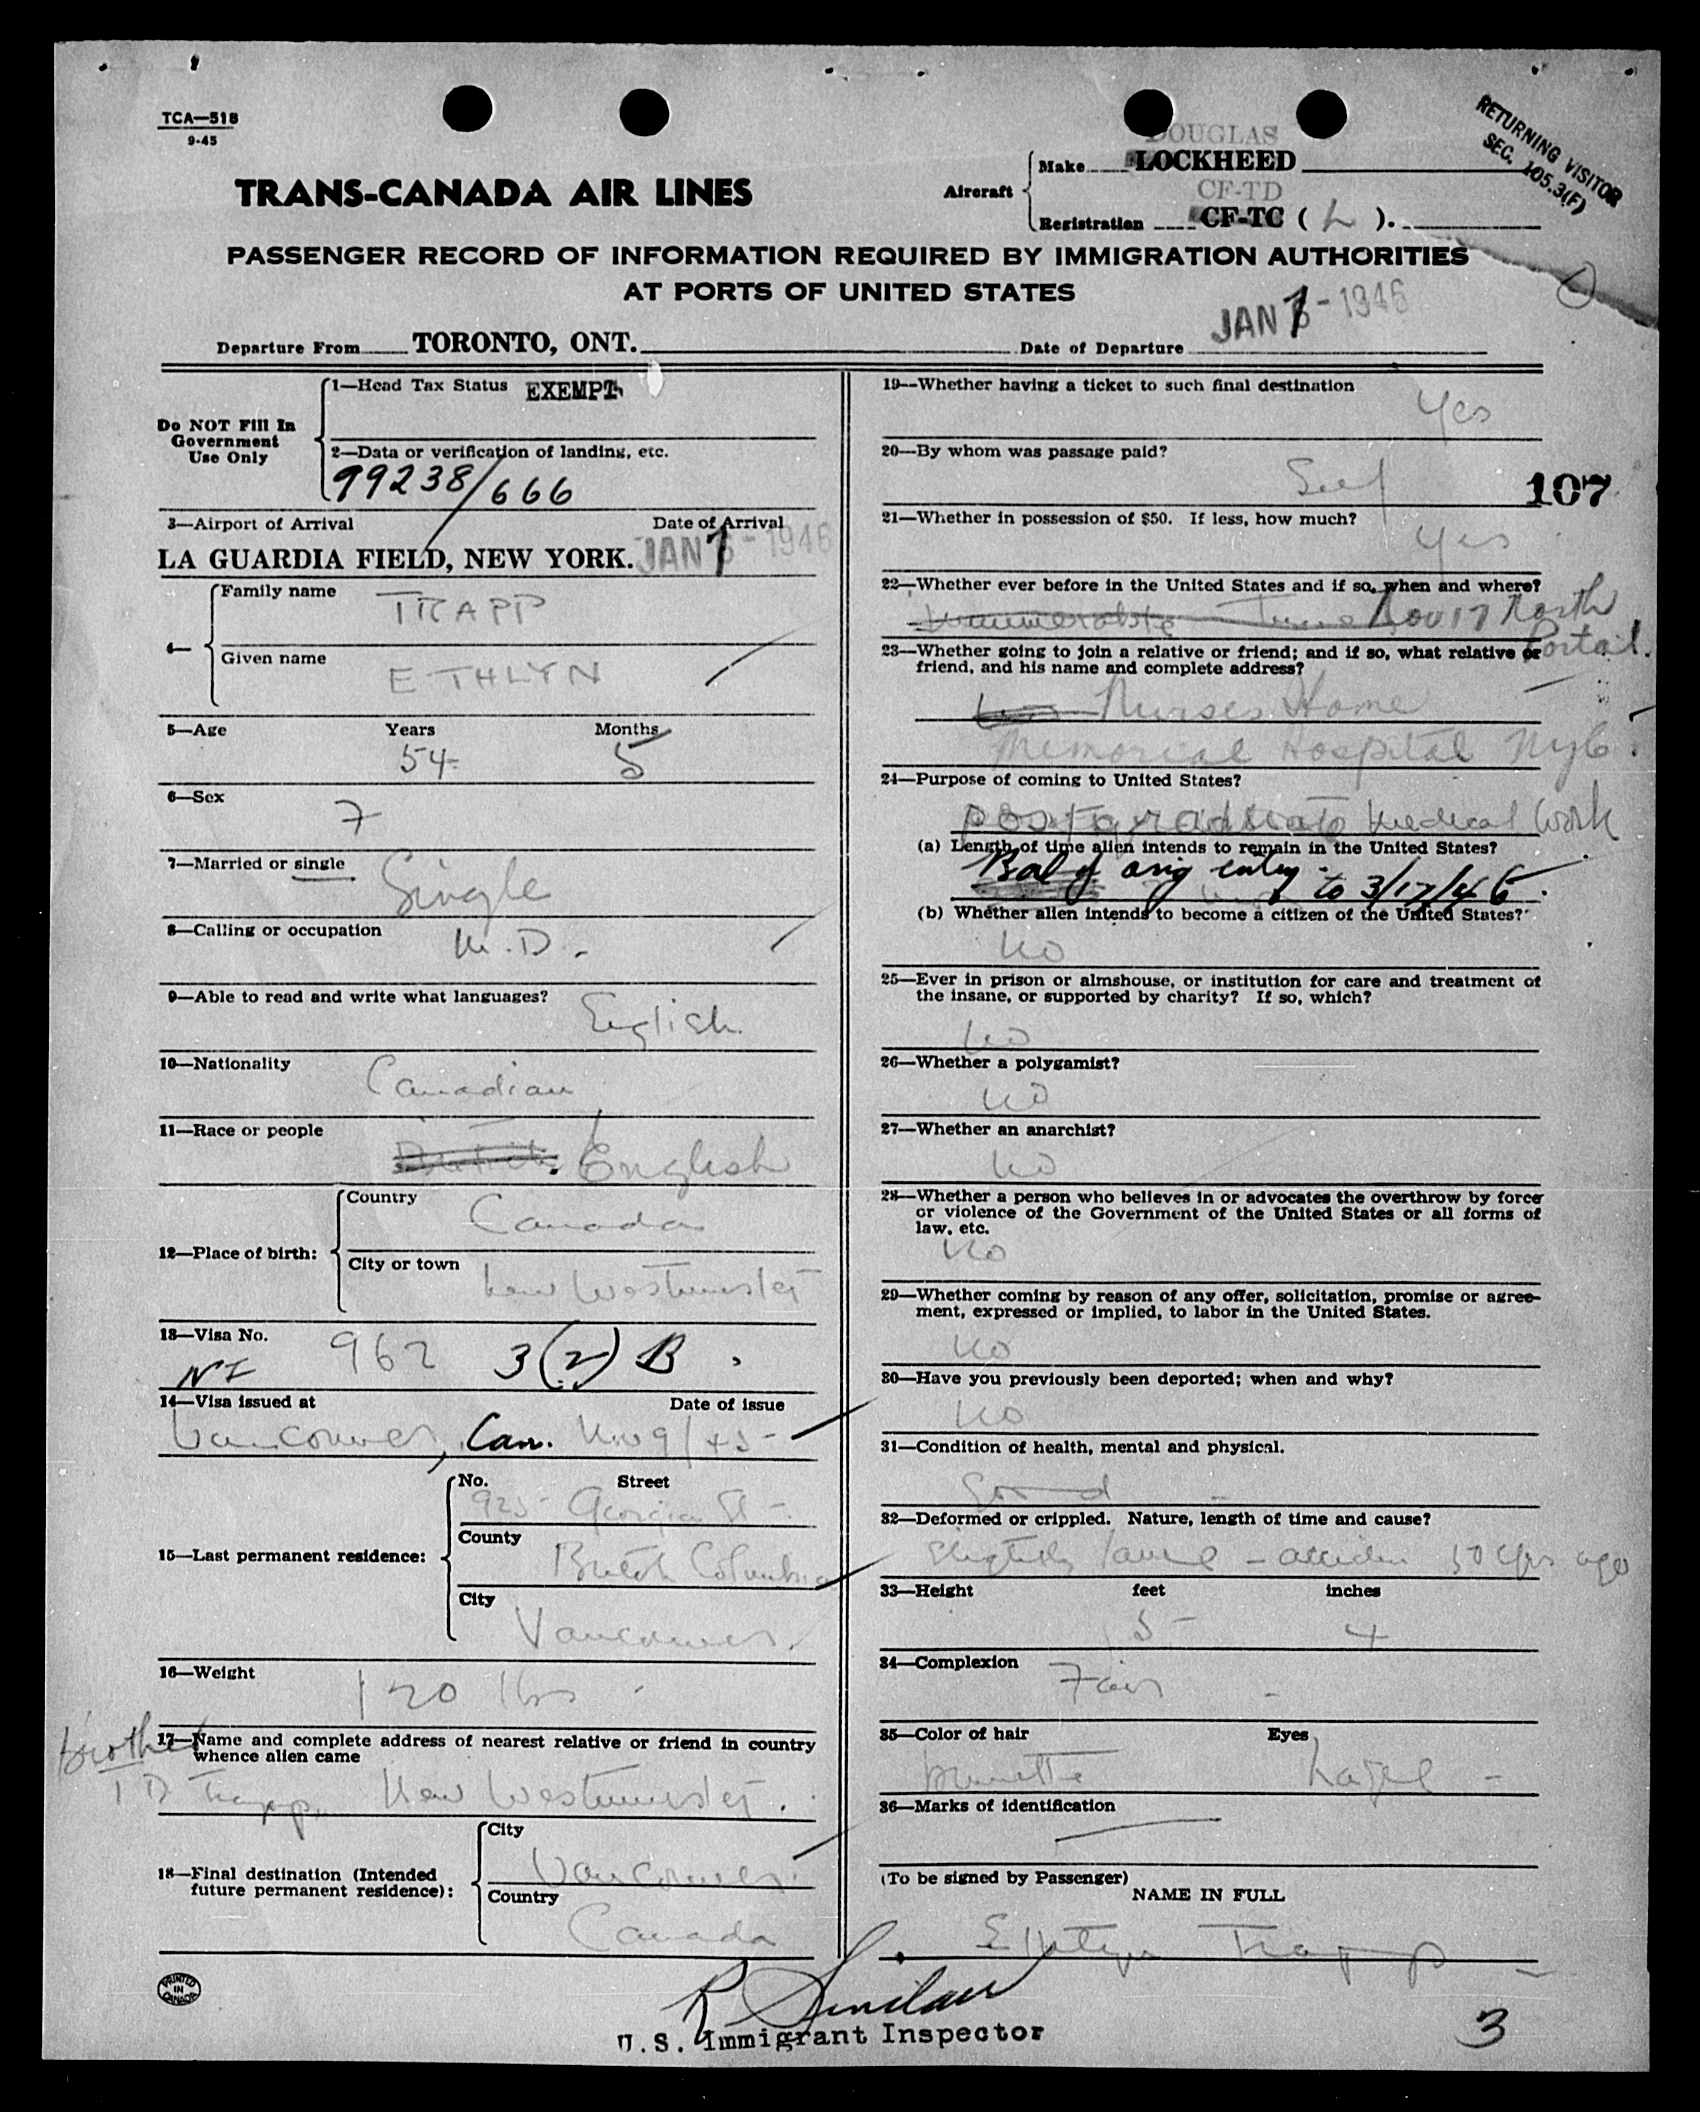 TCA—518
9-45
RETURNING VISITOR
SEC. 105.3(F)
DOUGLAS
Make LOCKHEED
Aircraft
CF-TD
Registration CF-TC ( L ).
TRANS-CANADA AIR LINES
PASSENGER RECORD OF INFORMATION REQUIRED BY IMMIGRATION AUTHORITIES
AT PORTS OF UNITED STATES
JAN 7 - 1946
Departure From TORONTO, ONT. Date of Departure
Do NOT Fill In
Government
Use Only
1—Head Tax Status EXEMPT
2—Data or verification of landing, etc.
99238/666
3—Airport of Arrival Date of Arrival
LA GUARDIA FIELD, NEW YORK. JAN 7 - 1946
4—
Family name TRAPP
Given name ETHLYN
5—Age Years Months
54 5
6—Sex
F
7—Married or single
Single
8—Calling or occupation
M.D.
9—Able to read and write what languages?
English
10—Nationality
Canadian
11—Race or people
British English
12—Place of birth:
Country
Canada
City or town
New Westminster
13—Visa No.
NI 962 3(2) B
14—Visa issued at Date of issue
Vancouver, Can. Nov 9/45
15—Last permanent residence:
No. Street
925 Georgia St
County
British Columbia
City
Vancouver
16—Weight
120 lbs
brother
17—Name and complete address of nearest relative or friend in country
whence alien came
T D Trapp, New Westminster.
18—Final destination (Intended
future permanent residence):
City
Vancouver
Country
Canada
19—Whether having a ticket to such final destination
Yes
20—By whom was passage paid?
Self
107
21—Whether in possession of $50. If less, how much?
Yes
22—Whether ever before in the United States and if so, when and where?
Innumerable June Nov 17 North
Portal.
23—Whether going to join a relative or friend; and if so, what relative or
friend, and his name and complete address?
Nurses Home
Memorial Hospital NYC.
24—Purpose of coming to United States?
postgraduate medical work
(a) Length of time alien intends to remain in the United States?
Bal of orig entry to 3/17/46
(b) Whether alien intends to become a citizen of the United States?
No
25—Ever in prison or almshouse, or institution for care and treatment of
the insane, or supported by charity? If so, which?
No
26—Whether a polygamist?
No
27—Whether an anarchist?
No
28—Whether a person who believes in or advocates the overthrow by force
or violence of the Government of the United States or all forms of
law, etc.
No
29—Whether coming by reason of any offer, solicitation, promise or agree-
ment, expressed or implied, to labor in the United States.
No
30—Have you previously been deported; when and why?
No
31—Condition of health, mental and physical.
Good
32—Deformed or crippled. Nature, length of time and cause?
Slightly lame - accident 50 yrs ago
33—Height feet inches
5 4
34—Complexion
Fair
35—Color of hair Eyes
brunette hazel
36—Marks of identification
(To be signed by Passenger)
NAME IN FULL
Ethlyn Trapp
PRINTED
IN
CANADA
R Sinclair
U.S. Immigrant Inspector
3